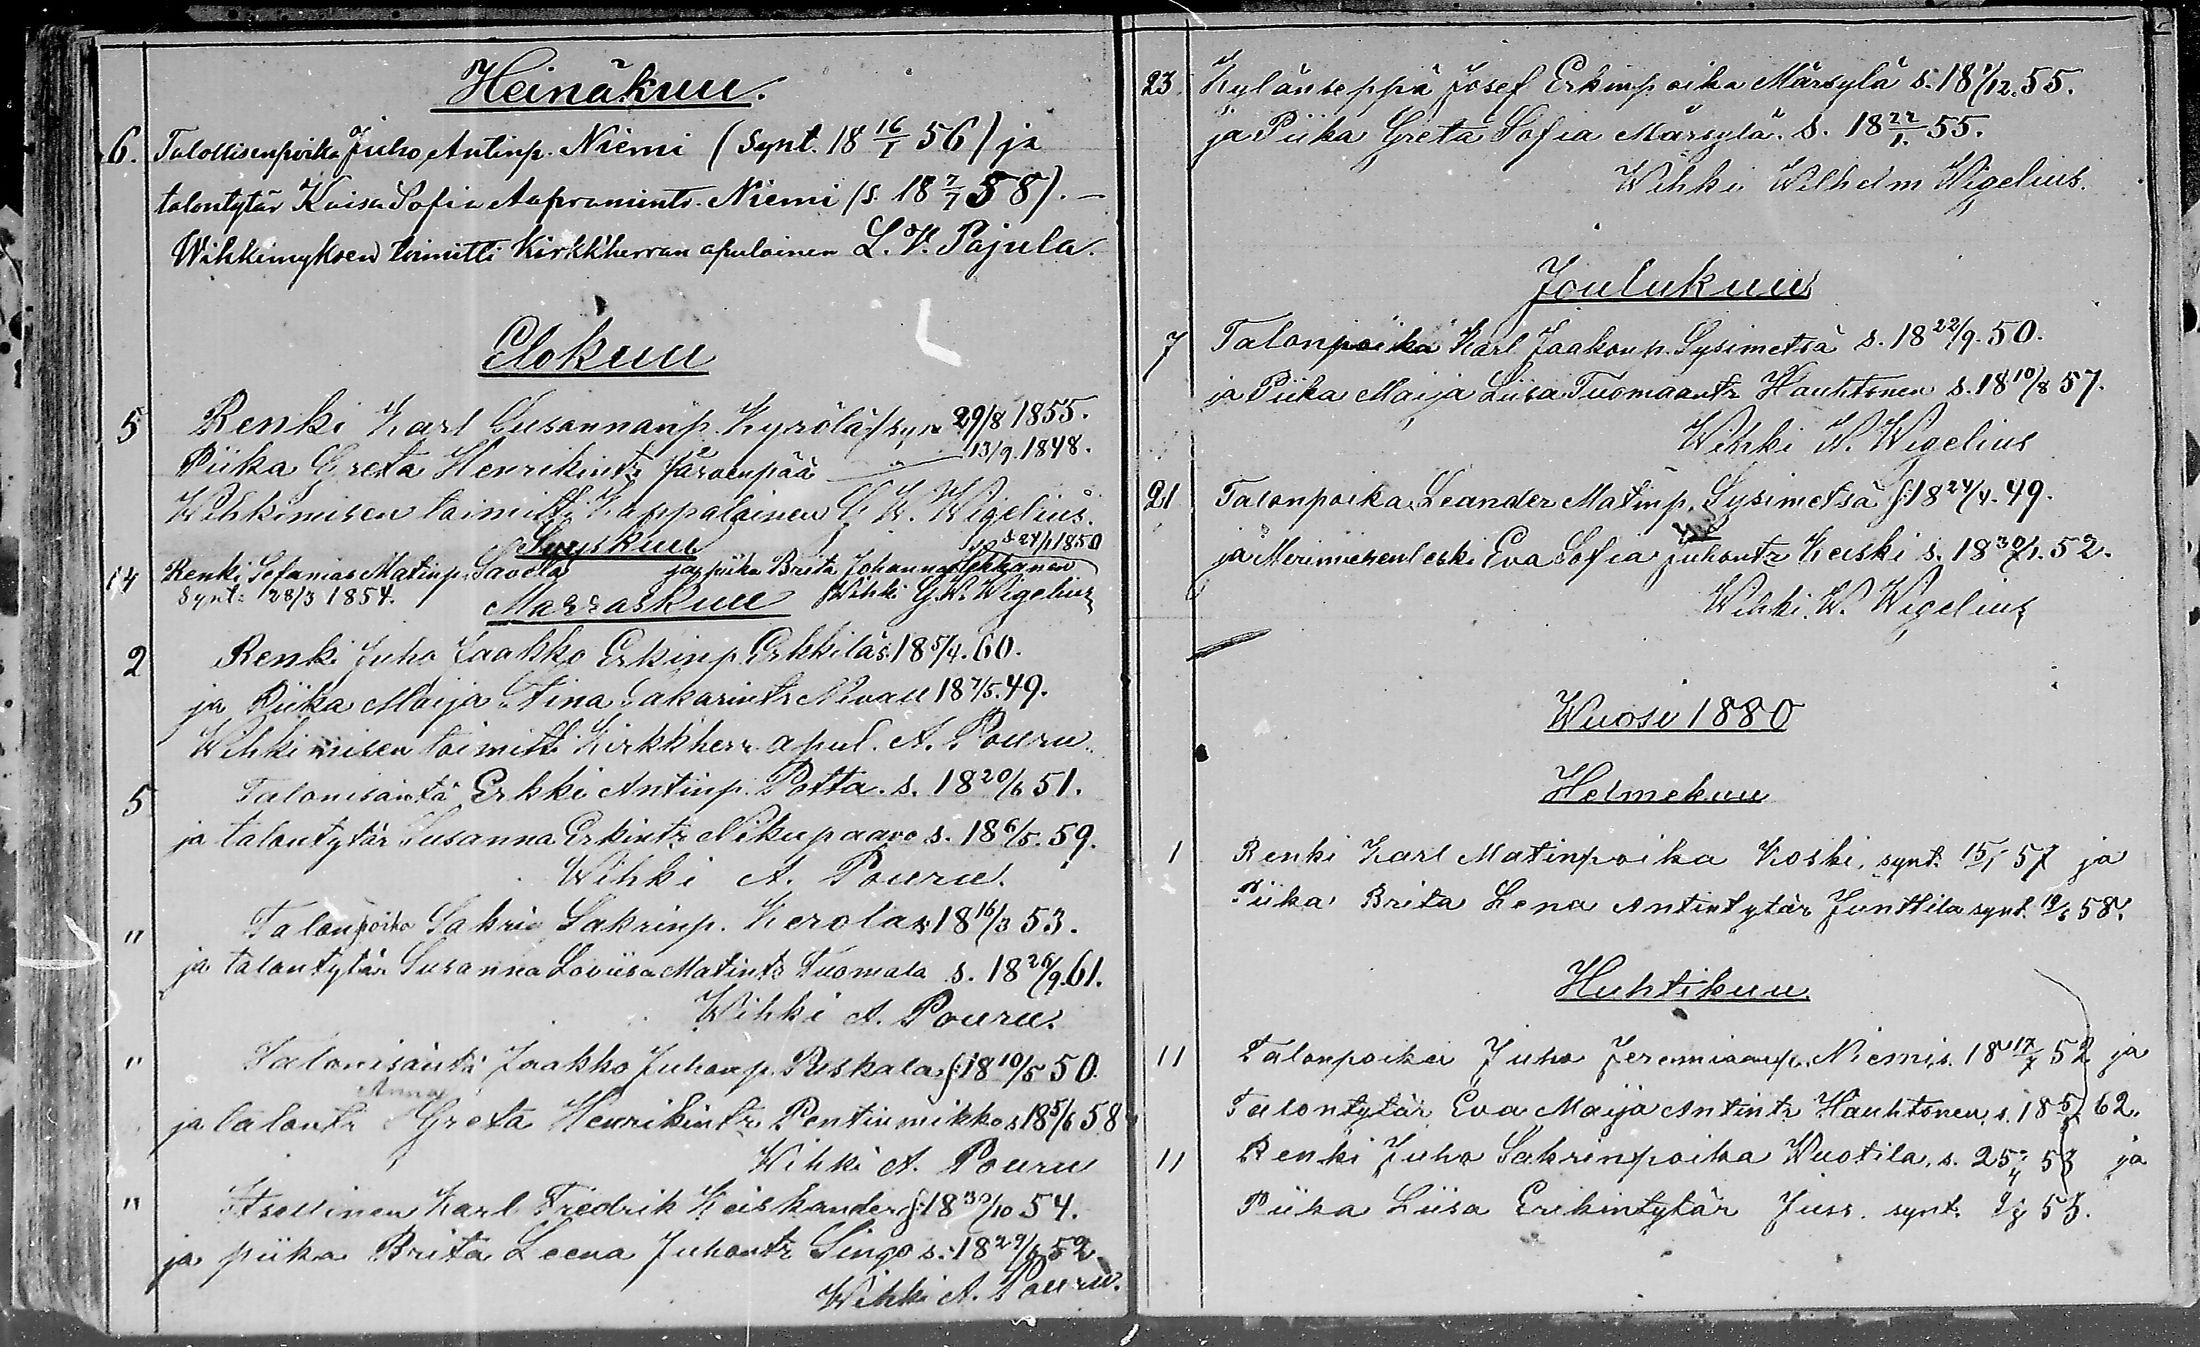 Heinäkuu.
6. Talollisenpoika Juho Antinp. Niemi (synt. 18 16/1 56) ja
talontytär Kaisa Sofia Aapramints. Niemi (s. 18 7/7 58). —
Wihkimyksen toimitti Kirkkherran apulainen L. V. Pajula.
Elokuu
5 Renki Karl Susannanp. Kyrölä synt 29/8 1855.
Piika Greta Henrikintr Järvenpää — " — 13/9. 1848.
Wihkimisen toimitti Kappalainen G. W. Wigelius.
Syyskuu s 24/1 1850
14 Renki Sefanias Matinp. Savela ja piika Brita Johanna Pekkanen
Synt: 28/3 1854. Wihki G. W. Wigelius
Marraskuu
2 Renki Juho Jaakko Erkinp. Erkkilä s. 18 5/4. 60.
ja Piika Maija Stina Sakarintr Nivau 18 7/5. 49.
Wihkimisen toimitti Kirkkherr. apul. A. Pouru.
5 Talonisäntä Erkki Antinp. Potta. s. 18 20/6 51.
ja talontytär Susanna Erkintr Nikupaavo s. 18 6/5. 59.
Wihki A. Pouru.
" Talonpoika Sakri Sakrinp. Kerola s. 18 16/3 53.
ja talontytär Susanna Loviisa Matintr Tuomala s. 18 26/9. 61.
Wihki A. Pouru.
" Talonisäntä Jaakko Juhonp. Puskala s. 18 10/5 50.
Anna
ja talontr Greta Henrikintr Pentinmikko s 18 5/6 58
Wihki A. Pouru
" Itsellinen Karl Fredrik Keiskander s. 18 30/10 54.
ja piika Brita Leena Juhontr Singo s. 18 29/6 52.
Wihki A. Pouru.
23. Kylänseppä Josef Erkinpoika Märsylä s. 18 1/12. 55.
ja Piika Greta Sofia Märsylä. s. 18 22/1. 55.
Wihki Wilhelm Wigelius.
Joulukuu
7 Talonpoika Karl Jaakonp. Sysimetsä s. 18 22/9. 50.
ja Piika Maija Liisa Tuomaantr Hauhtonen s. 18 10/8 57.
Wihki W. Wigelius
21 Talonpoika Leander Matinp. Sysimetsä s. 18 24/4. 49.
ja Merimiehenleski Eva Sofia Juhontr Keiski s. 18 30/1. 52.
Wihki. W. Wigelius
Wuosi 1880
Helmekuu
1 Renki Karl Matinpoika Koski, synt. 15/1 57 ja
Piika Brita Lena Antintytär Junttila synt. 58.
Huhtikuu
11 Talonpoika Juho Jeremiaanp. Niemi s. 18 52 ja
Talontytär Eva Maija Antintr Hauhtonen, s. 18 62.
11 Renki Juho Sakrinpoika Wuotila, s. 53 ja
Piika Liisa Erikintytär Juss. synt.